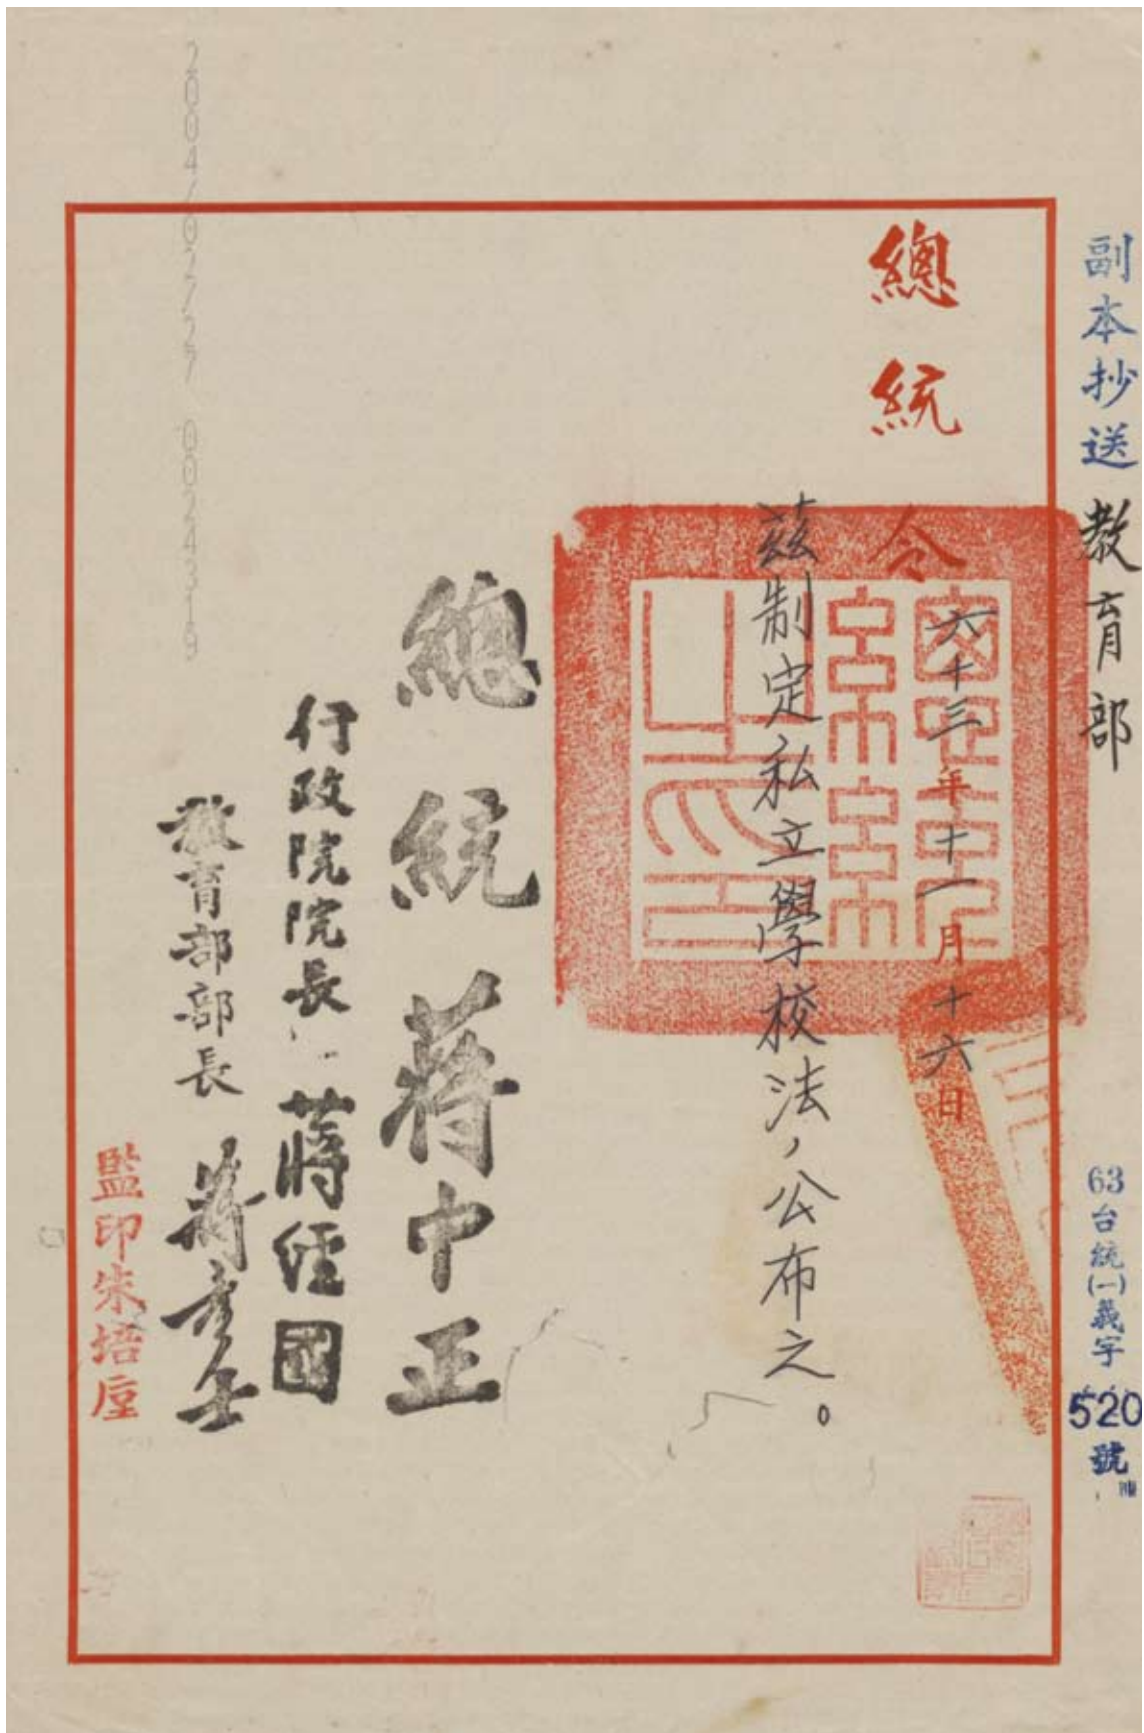 副本抄送 教育部
63台統(一)義字520號
總統令
六十三年十一月十六日
茲制定私立學校法，公布之。
總統 蔣中正
行政院院長 蔣經國
教育部部長 蔣彥士
監印朱培垕
2004/07/27 00024319